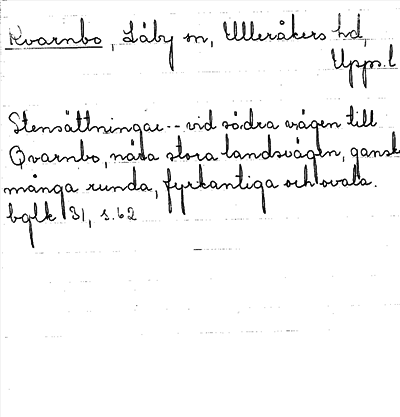 Kvarnbo, Låby sn, Ulleråkers hd,
Upps.l
Stensättningar -- vid södra vägen till
Qvarnbo, nära stora landsvägen, gansk
många runda, fyrkantiga och ovala.
bglk 31, s. 62